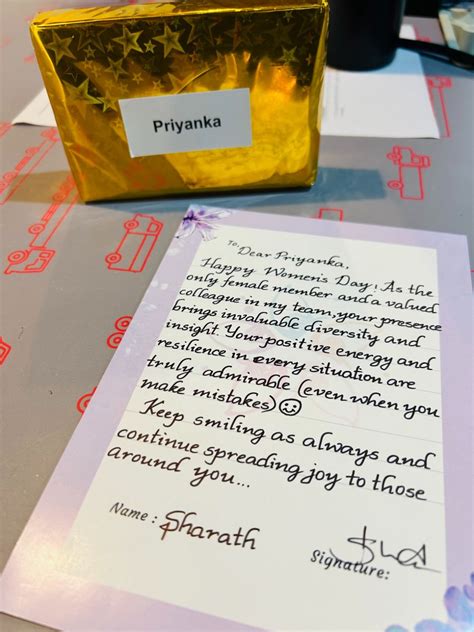 Priyanka
To Dear Priyanka,
Happy Women's Day! As the
only female member and a valued
colleague in my team, your presence
brings invaluable diversity and
insight. Your positive energy and
resilience in every situation are
truly admirable (even when you
make mistakes)☺
Keep smiling as always and
continue spreading joy to those
around you...
Name : Sharath
Signature: